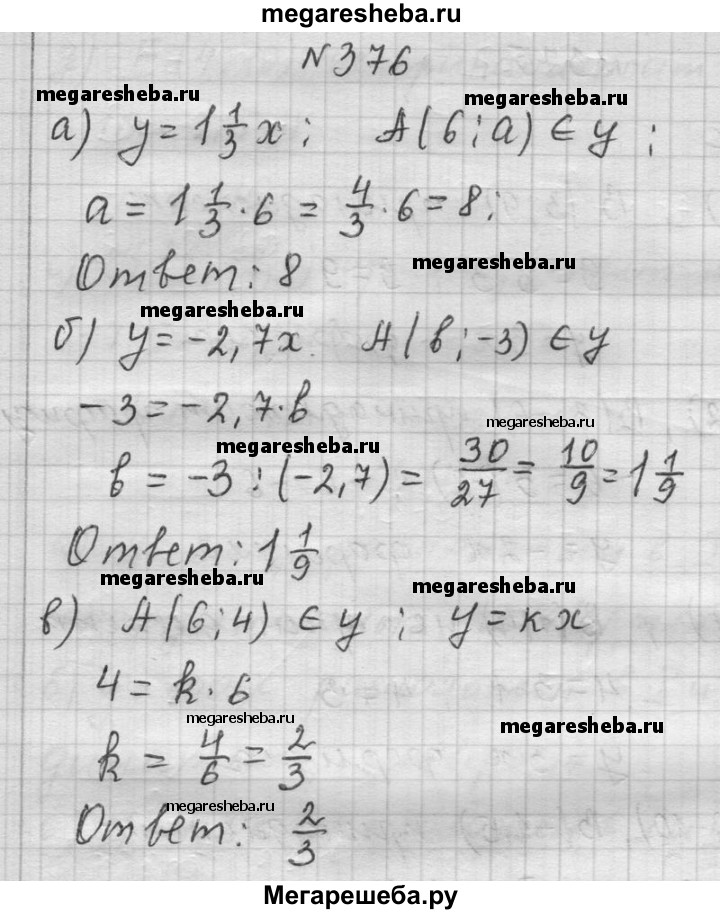 megaresheba.ru
N 376
megaresheba.ru megaresheba.ru
а) y = 1 1/3 x ; A(6 ; a) ∈ y ;
a = 1 1/3 · 6 = 4/3 · 6 = 8 ;
Ответ: 8 megaresheba.ru
megaresheba.ru
б) y = -2,7x. A(b ; -3) ∈ y
-3 = -2,7 · b
megaresheba.ru megaresheba.ru
b = -3 : (-2,7) = 30/27 = 10/9 = 1 1/9
Ответ: 1 1/9
megaresheba.ru megaresheba.ru
в) A(6 ; 4) ∈ y ; y = kx
4 = k · 6
megaresheba.ru megaresheba.ru
k = 4/6 = 2/3
megaresheba.ru
Ответ: 2/3
Мегарешеба.ру